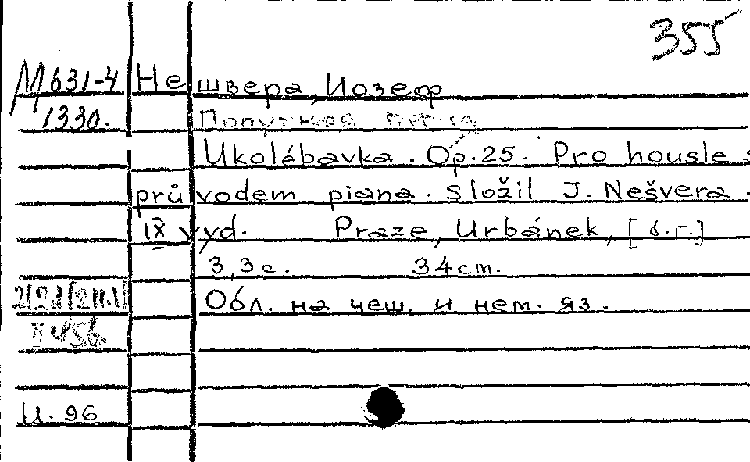 355
М631-4 Нешвера, Иозеф
1330.
Ukolébavka. Op. 25. Pro housle s
průvodem piana. Složil J. Nešvera.
IX vyd. Praze, Urbánek, [б.г.]
3,3 с. 34 cm.
Обл. на чеш. и нем. яз.
И. 96